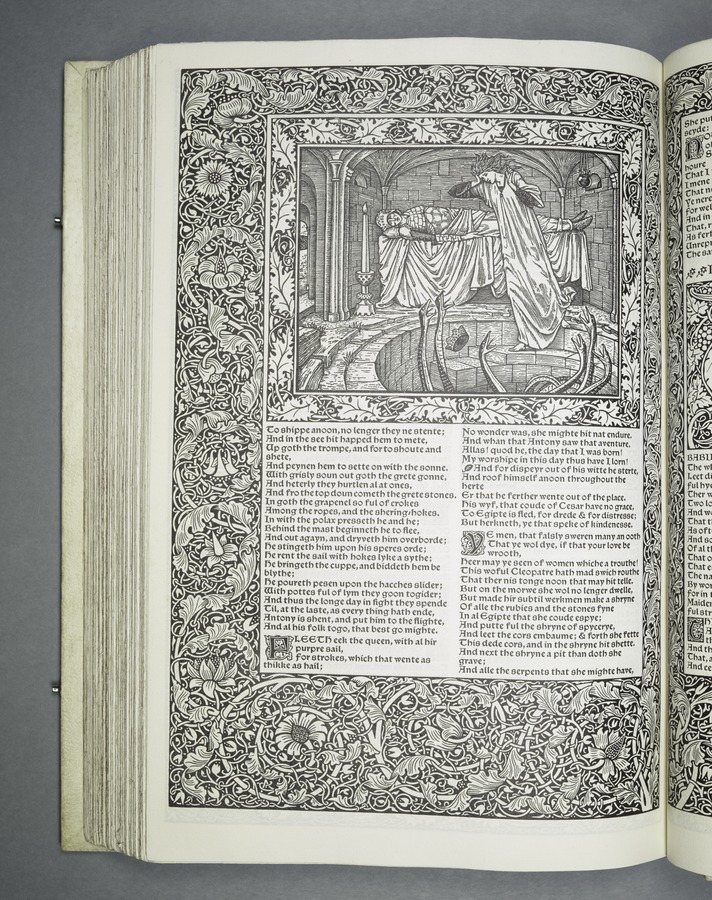 To shippe anoon, no lenger they ne stente;
And in the see hit happed hem to mete,
Up goth the trompe, and for to shoute and
shete,
And peynen hem to sette on with the sonne.
With grisly soun out goth the grete gonne,
And heterly they hurtlen al at ones,
And fro the top doun cometh the grete stones.
In goth the grapenel so ful of crokes
Among the ropes, and the shering-hokes.
In with the polax presseth he and he;
Behind the mast beginneth he to flee,
And out agayn, and dryveth him overborde;
He stingeth him upon his speres orde;
He rent the sail with hokes lyke a sythe;
He bringeth the cuppe, and biddeth hem be
blythe;
He poureth pesen upon the hacches slider;
With pottes ful of lym they goon togider;
And thus the longe day in fight they spende
Til, at the laste, as every thing hath ende,
Antony is shent, and put him to the flighte,
And al his folk togo, that best go mighte.
FLEETH eek the queen, with al hir
purpre sail,
For strokes, which that wente as
thikke as hail;
No wonder was, she mighte hit nat endure.
And whan that Antony saw that aventure,
Allas! quod he, the day that I was born!
My worshipe in this day thus have I lorn!
And for dispeyr out of his witte he sterte,
And roof himself anoon throughout the
herte
Er that he ferther wente out of the place.
His wyf, that coude of Cesar have no grace,
To Egipte is fled, for drede & for distresse;
But herkneth, ye that speke of kindenesse.
YE men, that falsly sweren many an ooth
That ye wol dye, if that your love be
wrooth,
Heer may ye seen of women whiche a trouthe!
This woful Cleopatre hath mad swich routhe
That ther nis tonge noon that may hit telle.
But on the morwe she wol no lenger dwelle,
But made hir subtil werkmen make a shryne
Of alle the rubies and the stones fyne
In al Egipte that she coude espye;
And putte ful the shryne of spycerye,
And leet the cors embaume; & forth she fette
This dede cors, and in the shryne hit shette.
And next the shryne a pit than doth she
grave;
And alle the serpents that she mighte have,
She put
seyde:
houre
That I
I mene
That no
Ye nere
For wel
And in
That, r
As ferf
Unrepr
The sa